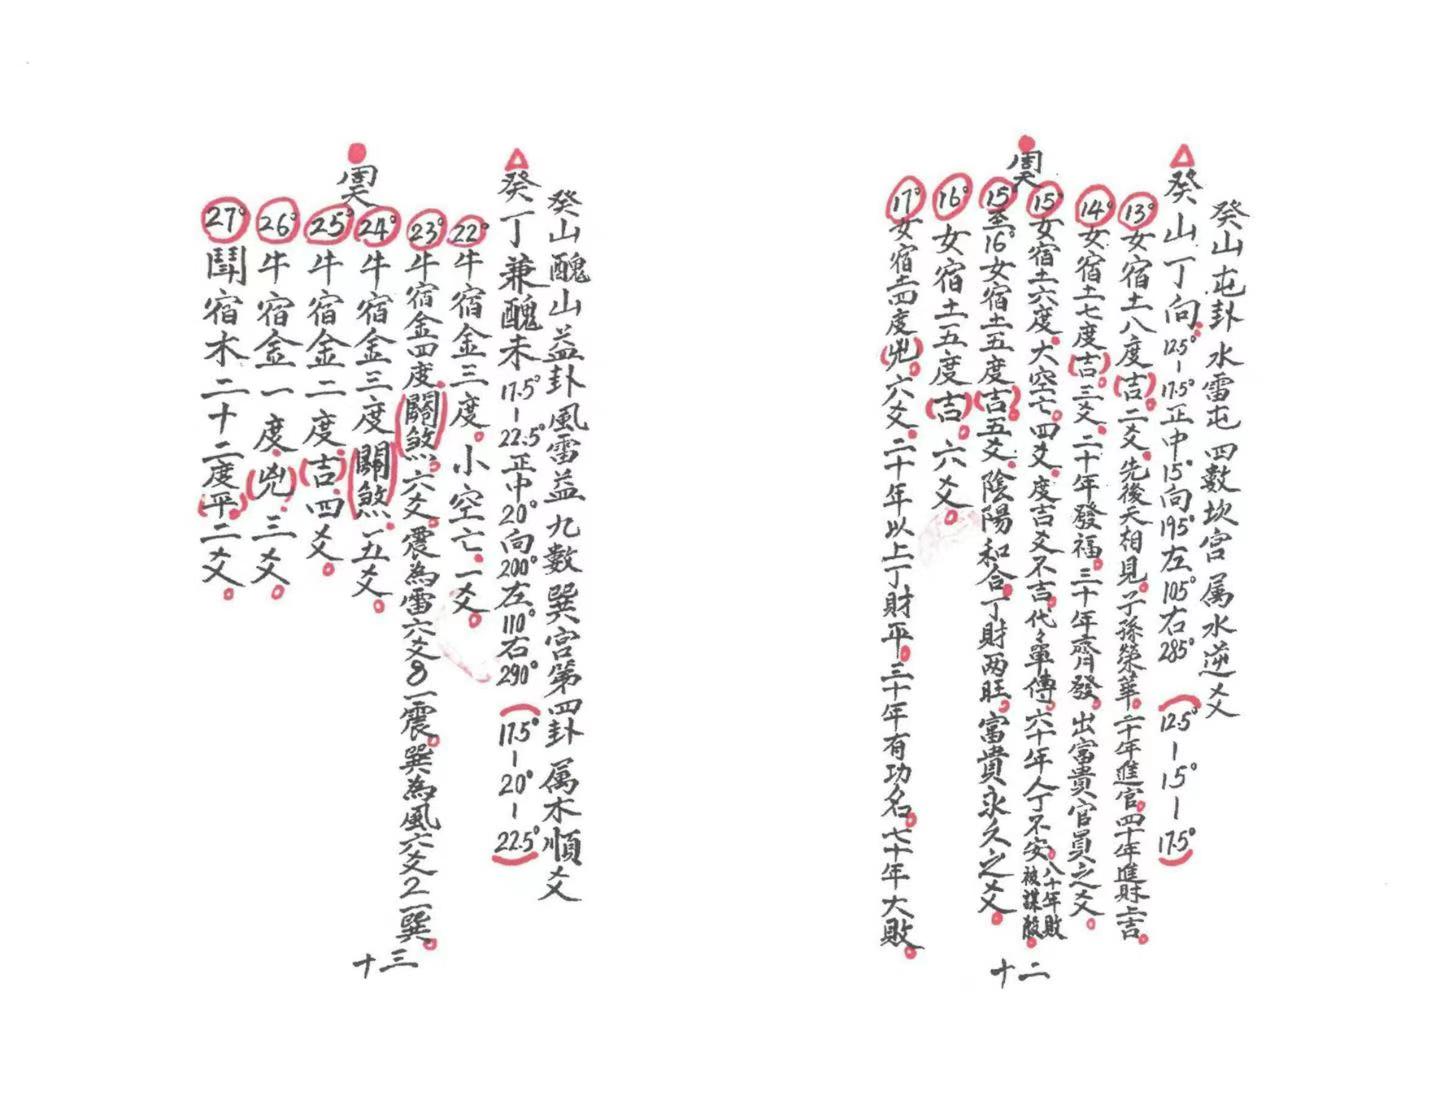 癸山屯卦水雷屯四數坎宮属水逆爻
癸山丁向12.5°-17.5°正中15°向195°左105°右285°(12.5°-15°-17.5°)
周天
13°女宿土八度(吉)二爻。先後天相見。子孫榮華。二十年進官。四十年進財上吉。
14°女宿土七度(吉)。三爻。二十年發福。三十年齊發。出富貴官員之爻。
15°女宿土六度。大空亡。四爻。度吉爻不吉。代々單傳。六十年人丁不安。八十年敗被謀殺。
15°至16°女宿土五度(吉)。五爻。陰陽和合。丁財两旺。富貴永久之爻。
16°女宿土五度(吉)。六爻。
17°女宿土四度(兇)。六爻。二十年以上丁財平。三十年有功名。七十年大敗。
十二
癸山醜山益卦風雷益九數巽宮第四卦属木順爻
癸丁兼醜未17.5°-22.5°正中20°向200°左110°右290°(17.5°-20°-22.5°)
周天
22°牛宿金三度。小空亡。一爻。
23°牛宿金四度。(關煞)。六爻。震為雷六爻8一震。巽為風六爻2一巽。
24°牛宿金三度(關煞)。一五爻。
25°牛宿金二度。(吉)。四爻。
26°牛宿金一度。(兇)。三爻。
27°鬪宿木二十二度(平)。二爻。
十三